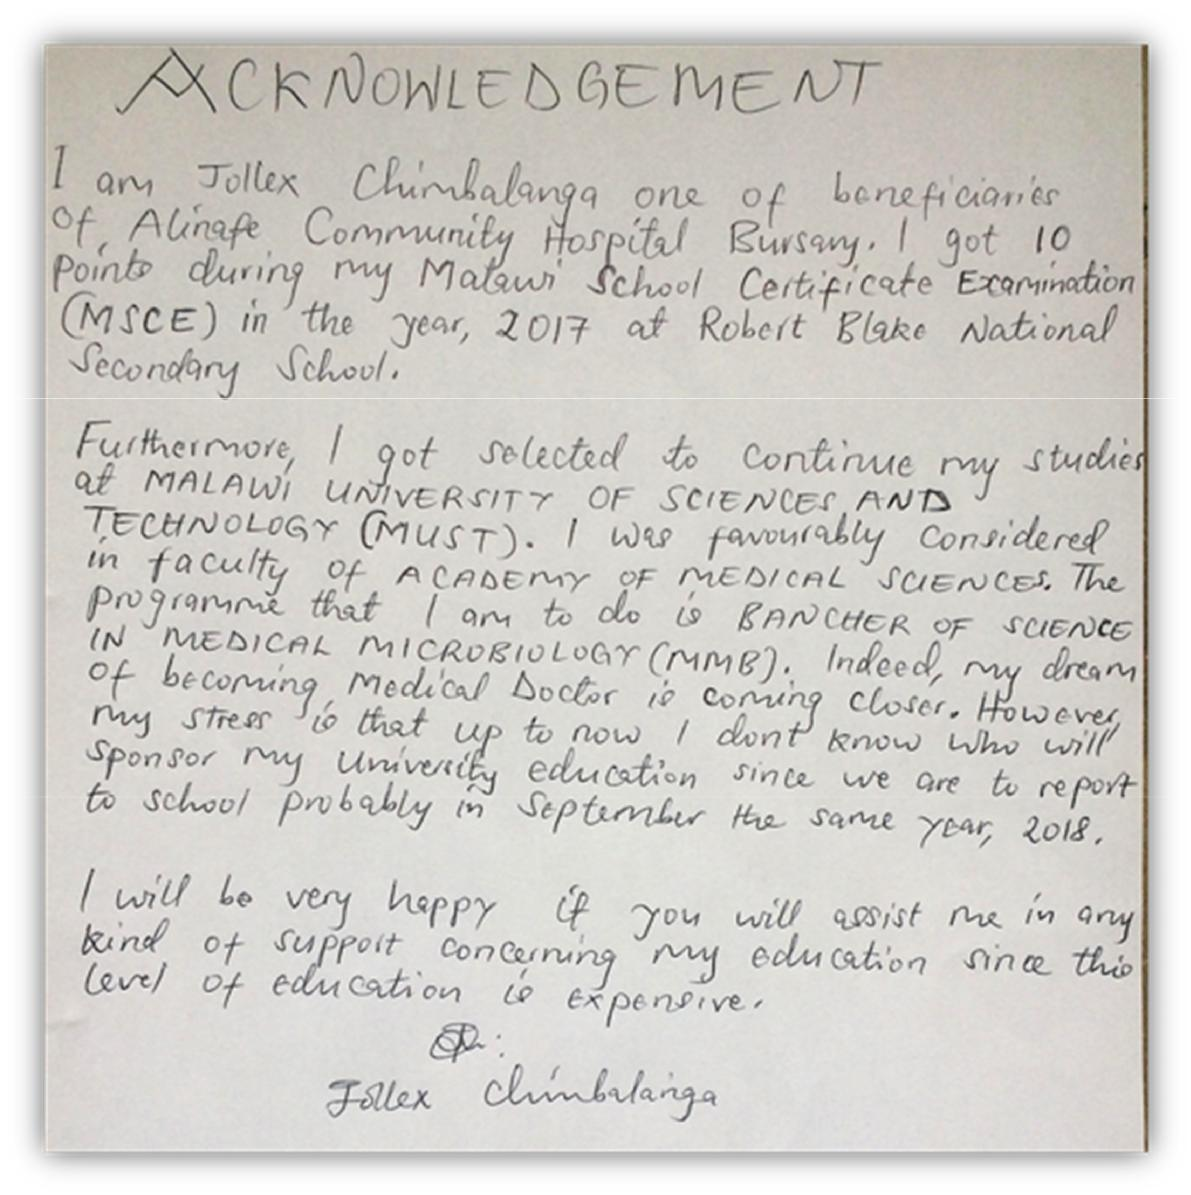 ACKNOWLEDGEMENT
I am Jollex Chimbalanga one of beneficiaries
of, Alinafe Community Hospital Bursary. I got 10
points during my Malawi School Certificate Examination
(MSCE) in the year, 2017 at Robert Blake National
Secondary School.
Furthermore, I got selected to continue my studies
at MALAWI UNIVERSITY OF SCIENCES AND
TECHNOLOGY (MUST). I was favourably considered
in faculty of ACADEMY OF MEDICAL SCIENCES. The
programme that I am to do is BANCHER OF SCIENCE
IN MEDICAL MICROBIOLOGY (MMB). Indeed, my dream
of becoming Medical Doctor is coming closer. However,
my stress is that up to now I dont know who will
sponsor my University education since we are to report
to school probably in September the same year, 2018.
I will be very happy if you will assist me in any
kind of support concerning my education since this
level of education is expensive.
Jollex Chimbalanga